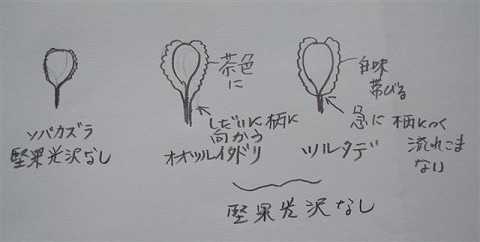 ソバカズラ
堅果光沢なし
茶色
に
しだいに柄に
向かう
オオツルイタドリ
白味
帯びる
急に柄につく
流れこま
ない
ツルタデ
堅果光沢なし